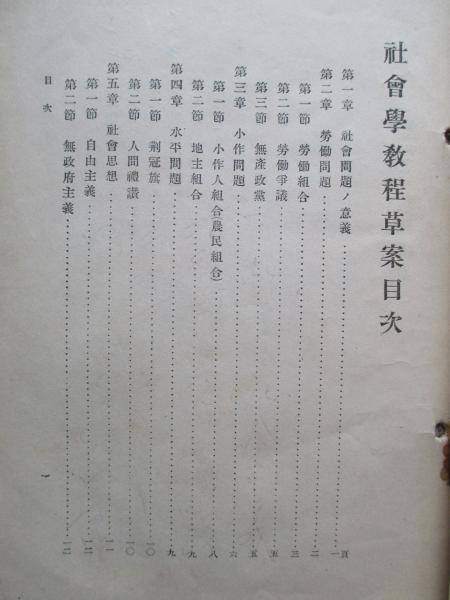 社會學敎程草案目次
第一章 社會問題ノ意義……一頁
第二章 勞働問題……二
第一節 勞働組合……三
第二節 勞働爭議……五
第三節 無產政黨……五
第三章 小作問題……六
第一節 小作人組合(農民組合)……八
第二節 地主組合……九
第四章 水平問題……九
第一節 荊冠旗……一〇
第二節 人間禮讃……一〇
第五章 社會思想……一一
第一節 自由主義……一二
第二節 無政府主義……一二
目次
一